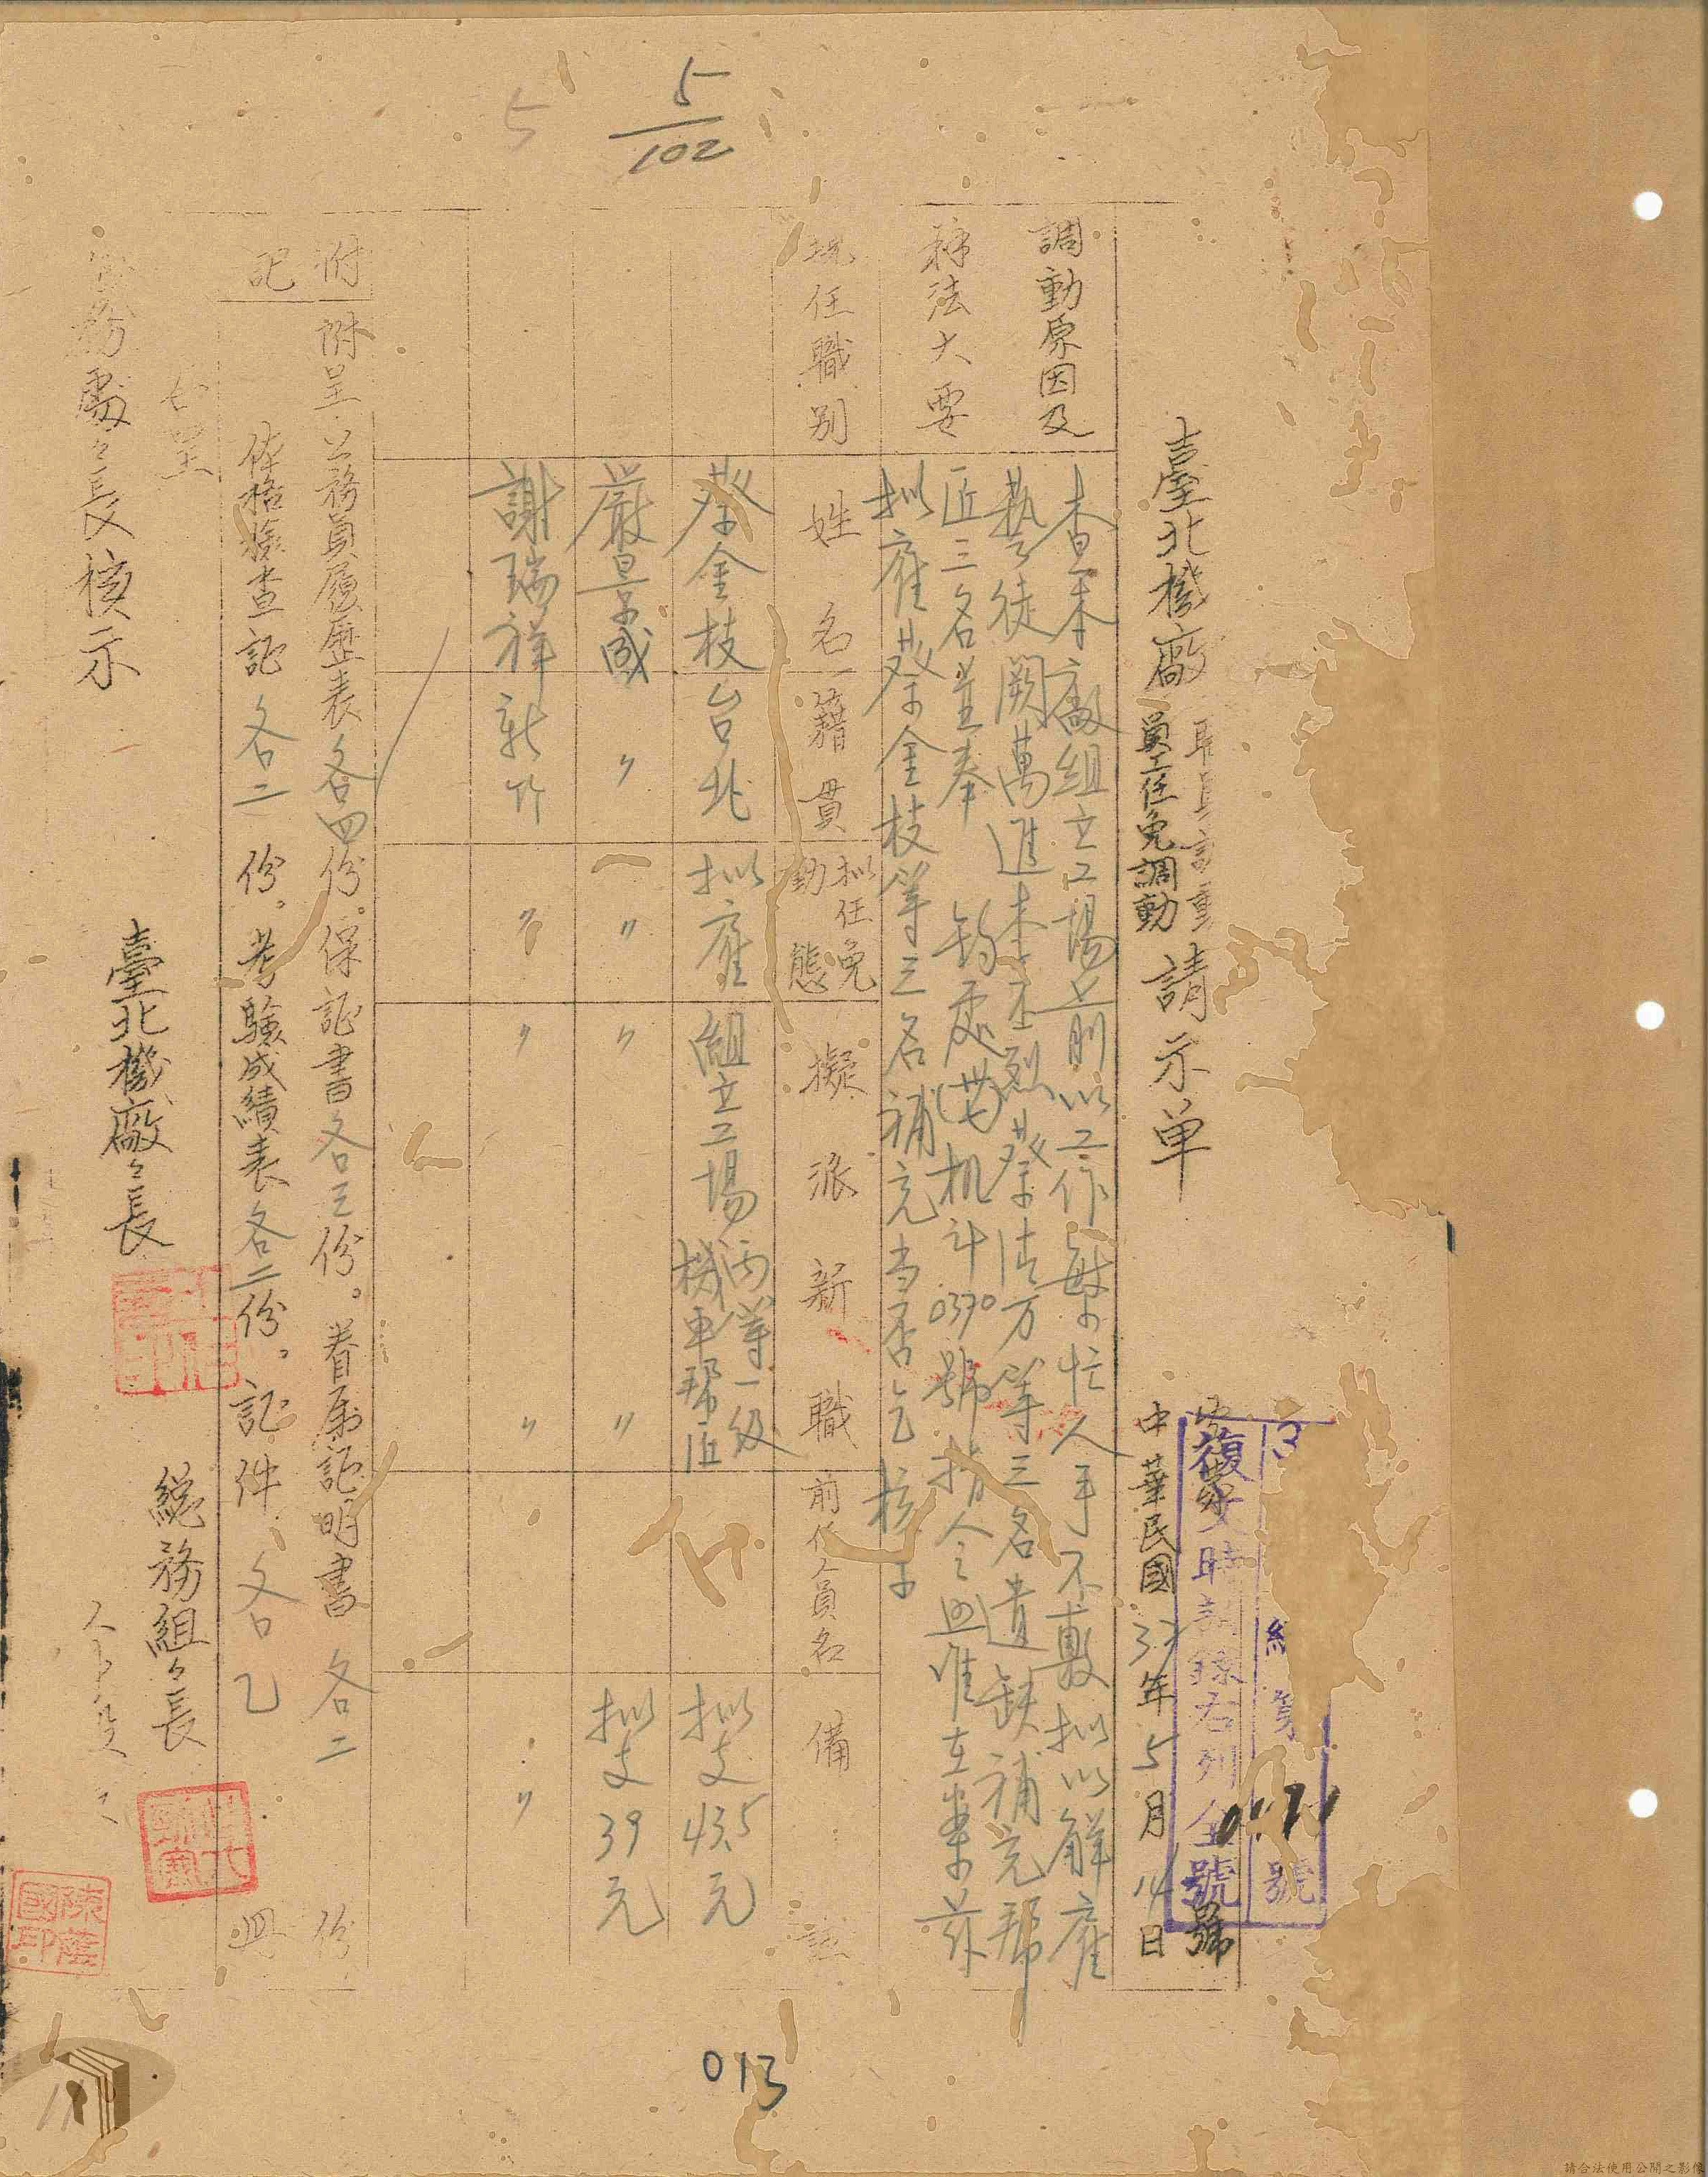 5
5/102
號
復文時 錄右列全號
號
中華民國37年5月14日
臺北機廠 員工任免調動 請示單
調動原因及
辦法大要
查本廠組立工場目前以工作繁忙人手不敷拟以解雇
藝徒闕萬進李丕烈蔡清万等三名遺缺補充帮
匠三名並奉 鈞處(卅七)机計0370號指令照准在案茲
拟雇蔡金枝等三名補充当否乞核示
現任職別
姓名
籍貫
拟任免
動態
擬派新職
前任人員名
備註
蔡金枝 台北 拟雇 組立工場 丙等一級
機車帮匠 拟支43.5元
嚴景盛 〃 〃 〃 〃 拟支39元
謝瑞祥 新竹 〃 〃 〃 〃 〃
附記
附呈公務員履歷表各四份。保証書各三份。眷属証明書各二份
体格檢查証各二份。考驗成績表各二份。証件各乙冊
右呈
務處々長核示
臺北機廠々長
総務組々長
013
請合法使用公開之影像